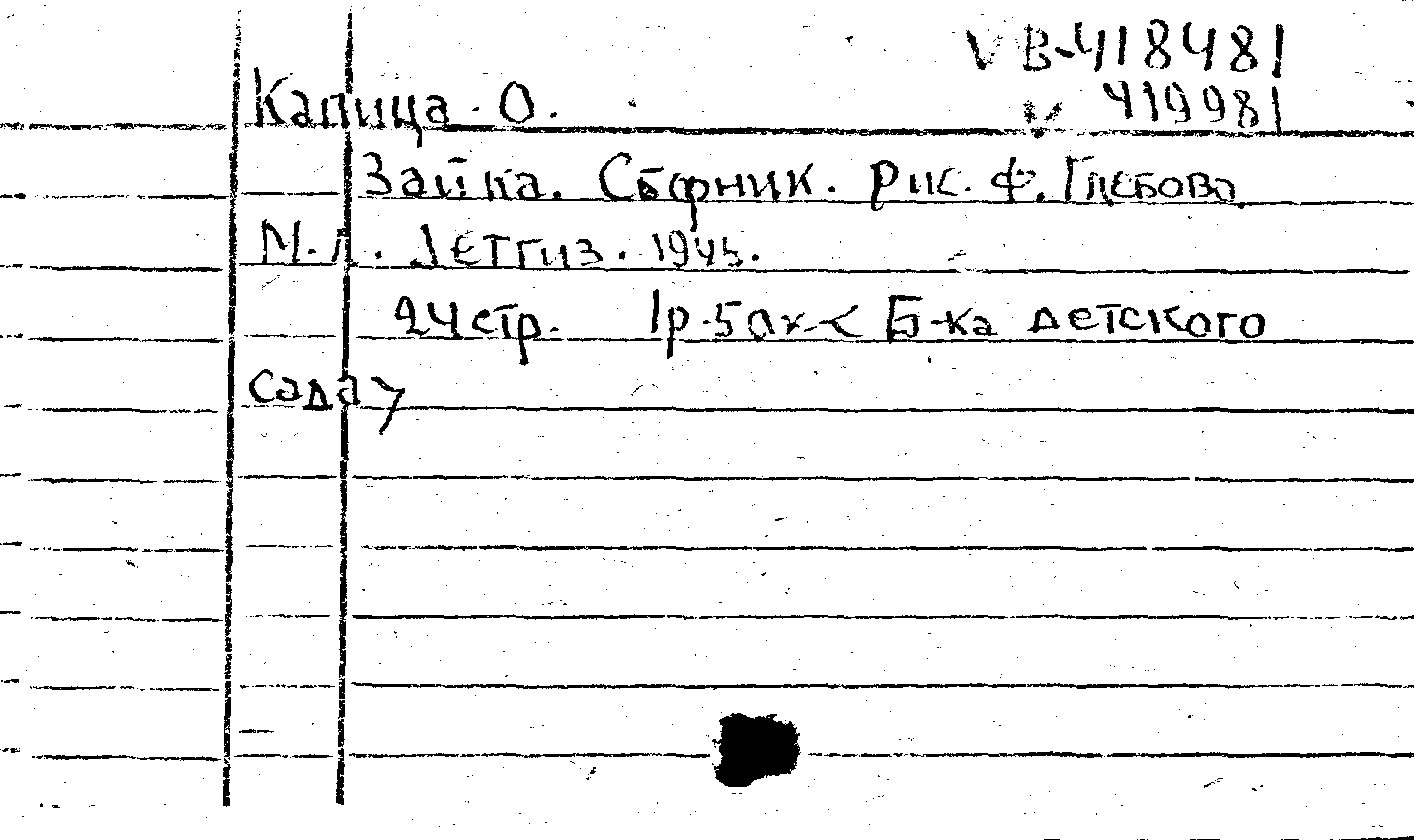 V В-418481
V 419981
Капица. О.
Зайка. Сборник. Рис. Ф. Глебова
М.Л. Детгиз. 1945.
24 стр. 1р-50к < Б-ка детского
сада >